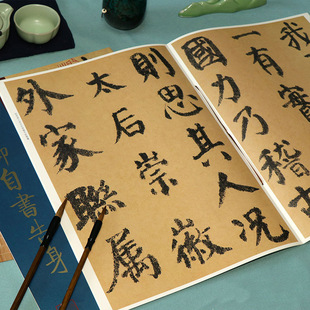 我
一有實
國力乃稽古
則思其人況
太后崇徽
外家聮属
卿自書告身